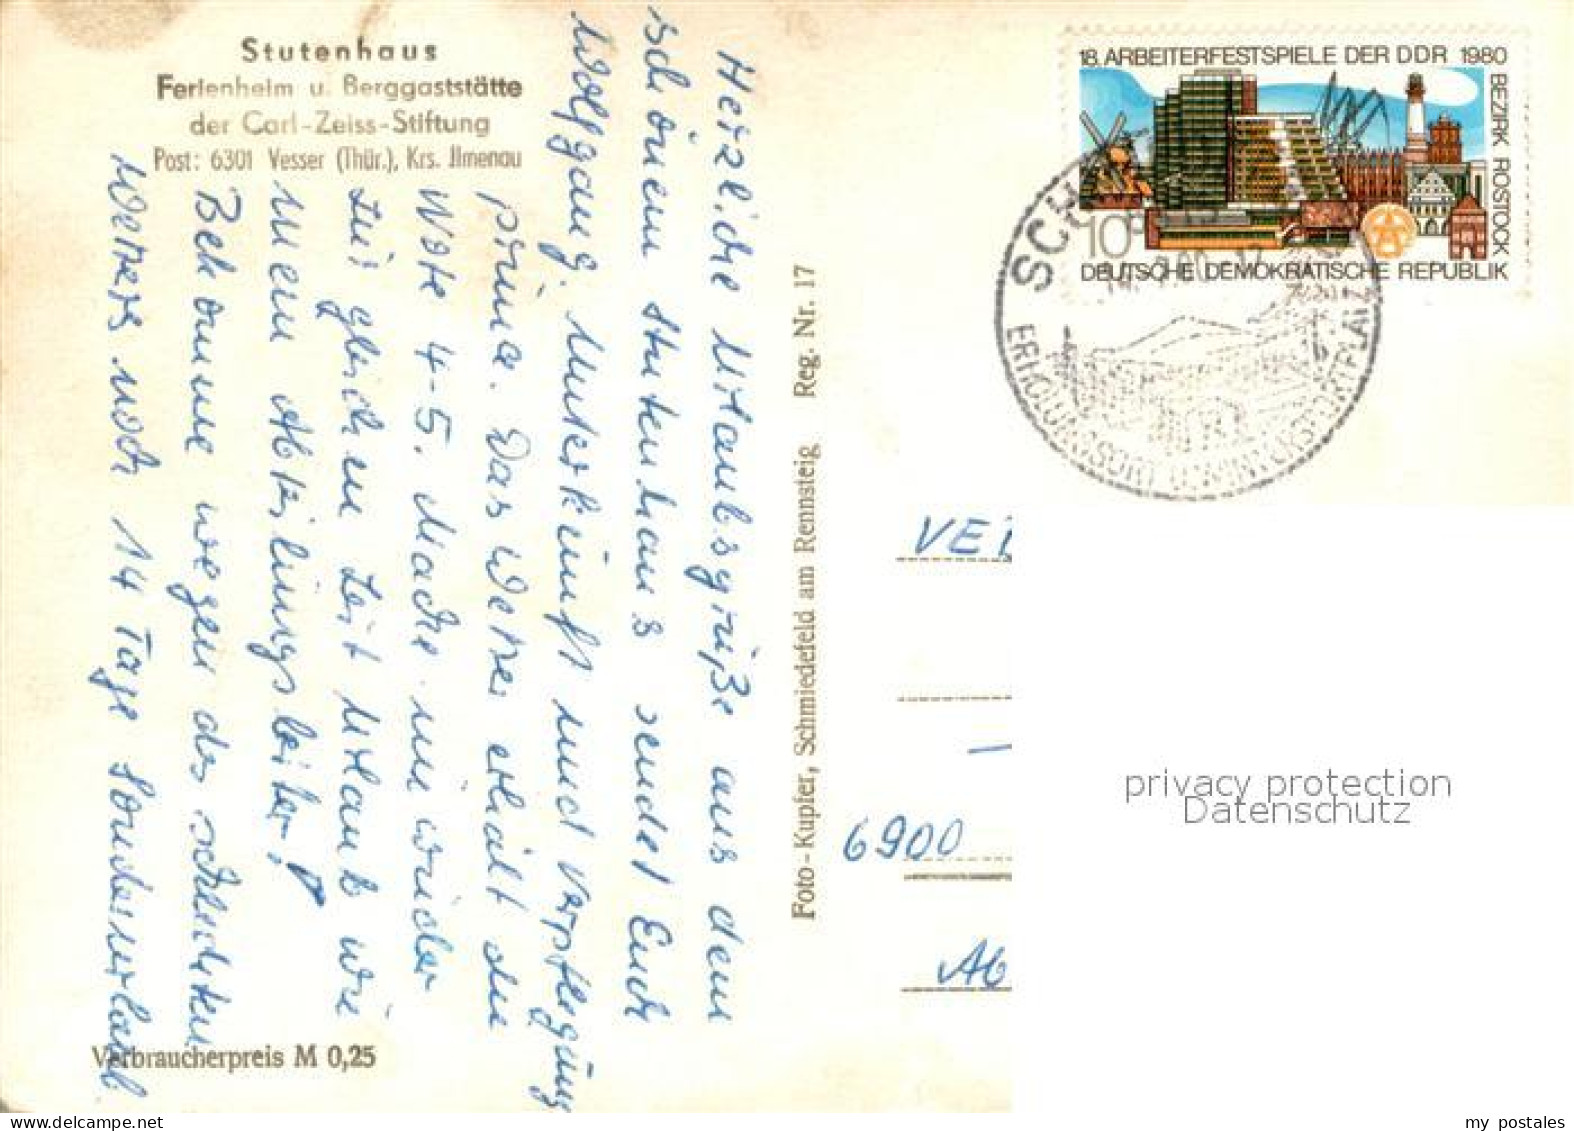 Stutenhaus
Ferienheim u. Berggaststätte
der Carl-Zeiss-Stiftung
Post: 6301 Vesser (Thür.), Krs. Ilmenau
Herzliche Urlaubsgrüße aus dem
schönen Stutenhaus sendet Euch
Wolfgang. Unterkunft und Verpflegung
prima. Das Wetter erhält die
Note 4-5. Mache nie wieder
zur gleichen Zeit Urlaub wie
mein Abteilungsleiter!
Bekomme wegen des schlechten
Wetters noch 14 Tage Sonderurlaub
Verbraucherpreis M 0,25
Foto-Kupfer, Schmiedefeld am Rennsteig Reg. Nr. 17
18. ARBEITERFESTSPIELE DER DDR 1980
BEZIRK ROSTOCK
10
DEUTSCHE DEMOKRATISCHE REPUBLIK
SCH
ERHOLUNGSORT
6900
privacy protection
Datenschutz
my postales